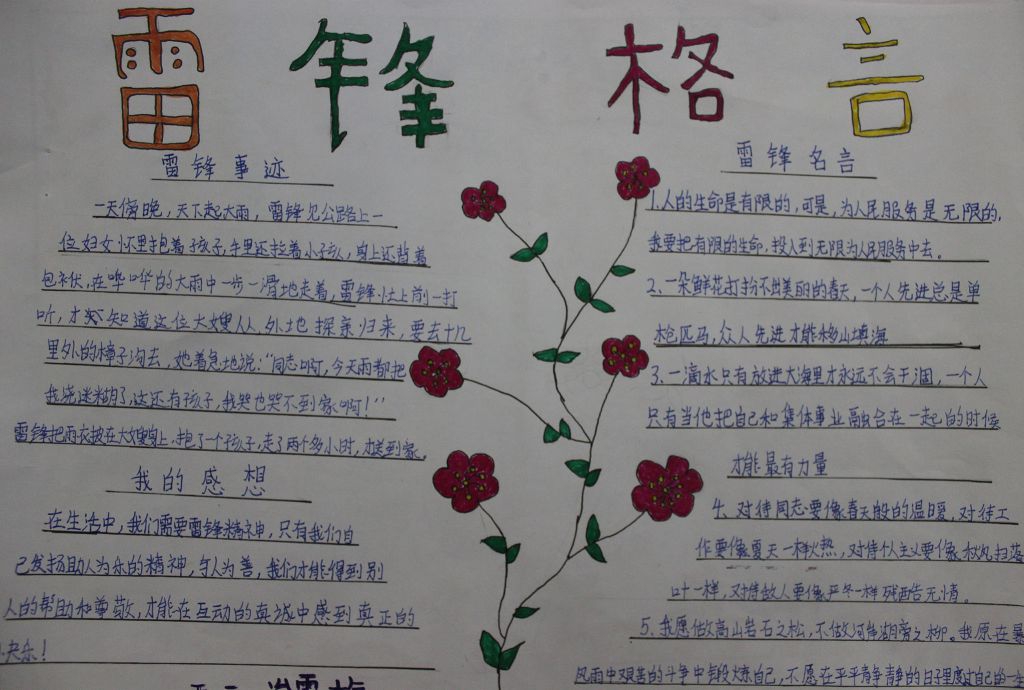 雷锋格言
雷锋事迹
一天傍晚，天下起大雨，雷锋见公路上一
位妇女怀里抱着孩子，手里还拉着小孩，身上还背着
包袱，在哗哗的大雨中一步一滑地走着，雷锋忙上前一打
听，才知道这位大嫂从外地探亲归来，要去十几
里外的樟子沟去，她着急地说：“同志啊，今天雨都把
我浇迷糊了，这还有孩子，我哭也哭不到家啊！”
雷锋把雨衣披在大嫂身上，抱了一个孩子，走了两个多小时，才送到家。
我的感想
在生活中，我们需要雷锋精神，只有我们自
己发扬助人为乐的精神，与人为善，我们才能得到别
人的帮助和尊敬，才能在互动的真诚中感到真正的
快乐！
雷锋名言
1、人的生命是有限的，可是，为人民服务是无限的，
我要把有限的生命，投入到无限为人民服务中去。
2、一朵鲜花打扮不出美丽的春天，一个人先进总是单
枪匹马，众人先进才能移山填海
3、一滴水只有放进大海里才永远不会干涸，一个人
只有当他把自己和集体事业融合在一起的时候
才能最有力量
4、对待同志要像春天般的温暖，对待工
作要像夏天一样火热，对待个人主义要像秋风扫落
叶一样，对待敌人要像严冬一样残酷无情。
5、我愿做高山岩石之松，不做河岸湖旁之柳。我愿在暴
风雨中艰苦的斗争中锻炼自己，不愿在平平静静的日子里度过自己的一生